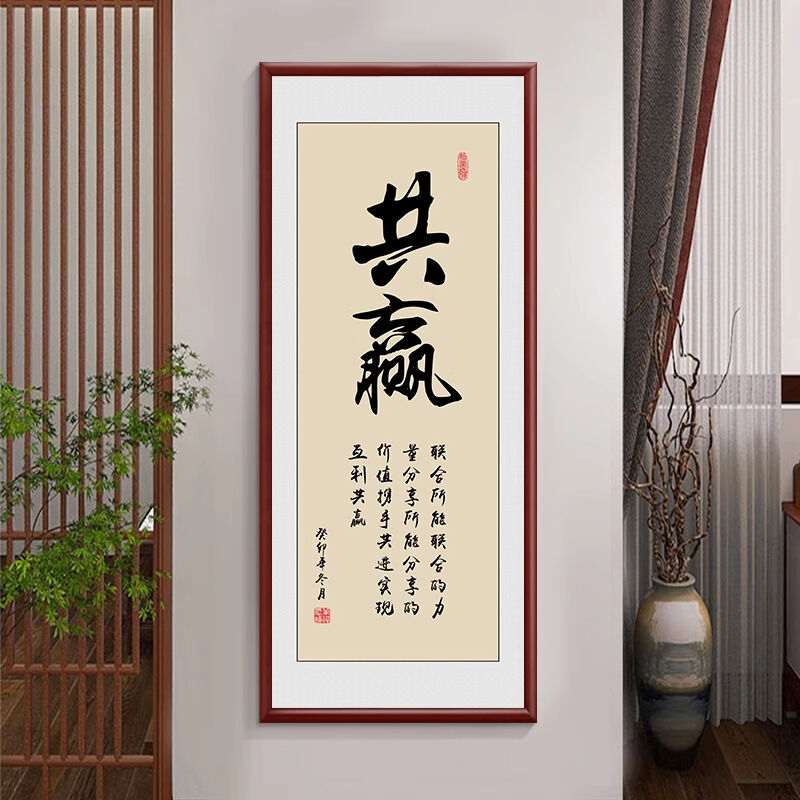 共赢
联合所能联合的力
量分享所能分享的
价值携手共进实现
互利共赢
癸卯年冬月